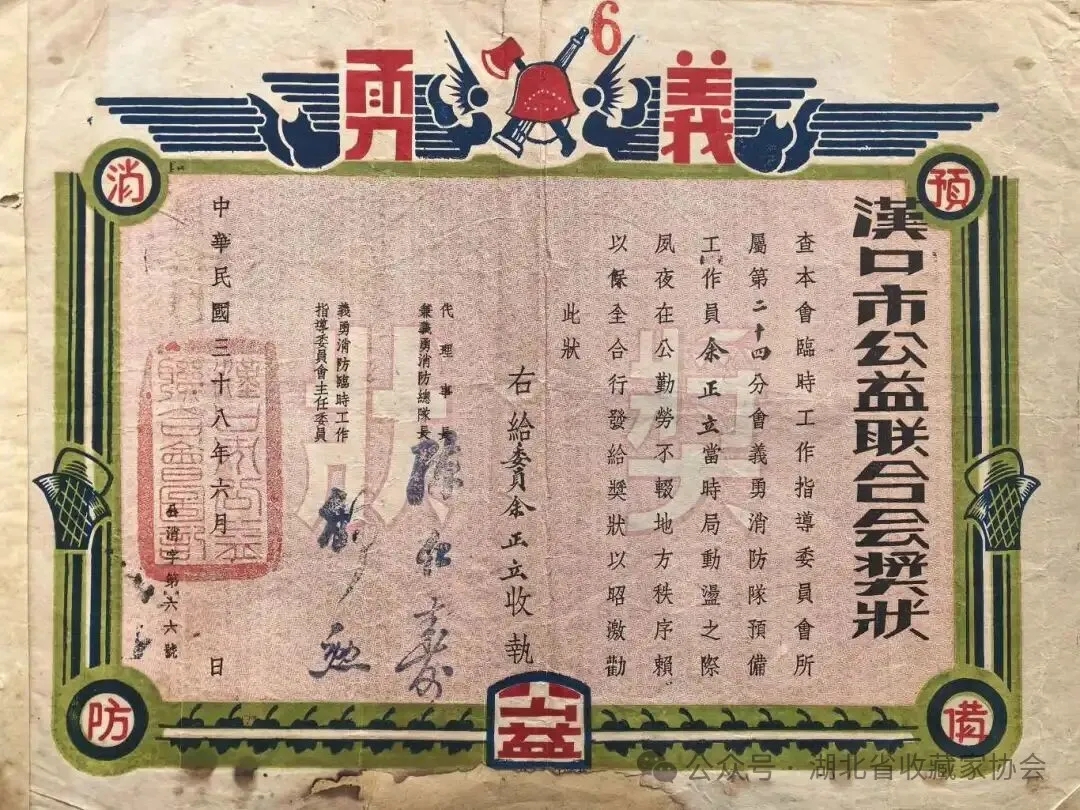 6
義勇
預備
消防
漢口市公益联合会奬狀
查本會臨時工作指導委員會所
屬第二十四分會義勇消防隊預備
工作員余正立當時局動盪之際
夙夜在公勤勞不輟地方秩序賴
以保全合行發給獎狀以昭激勸
此狀
右給委員余正立收執
代理事長
兼義勇消防總隊長
義勇消防臨時工作
指導委員會主任委員
中華民國三十八年六月 日
消字第六六號
獎狀
公益
公众号 · 湖北省收藏家协会